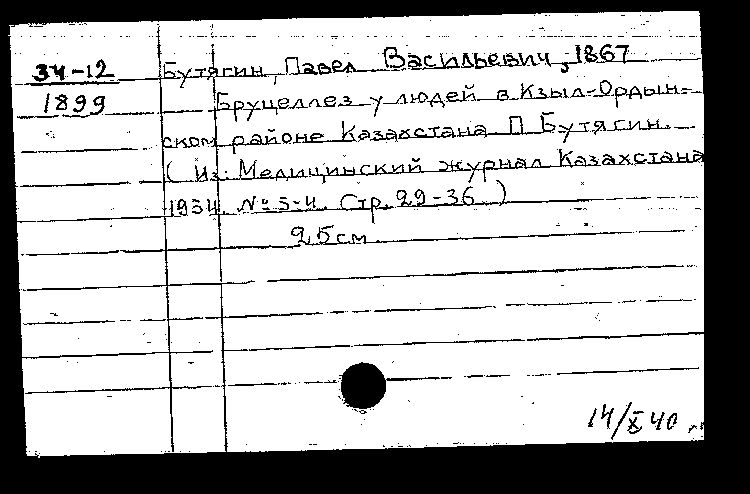 34-12
1899
Бутягин, Павел Васильевич, 1867
Бруцеллез у людей в Кзыл-Ордын-
ском районе Казахстана П Бутягин.
(Из: Медицинский журнал Казахстана
1934. № 3-4. Стр. 29-36.)
25 см.
14/X 40